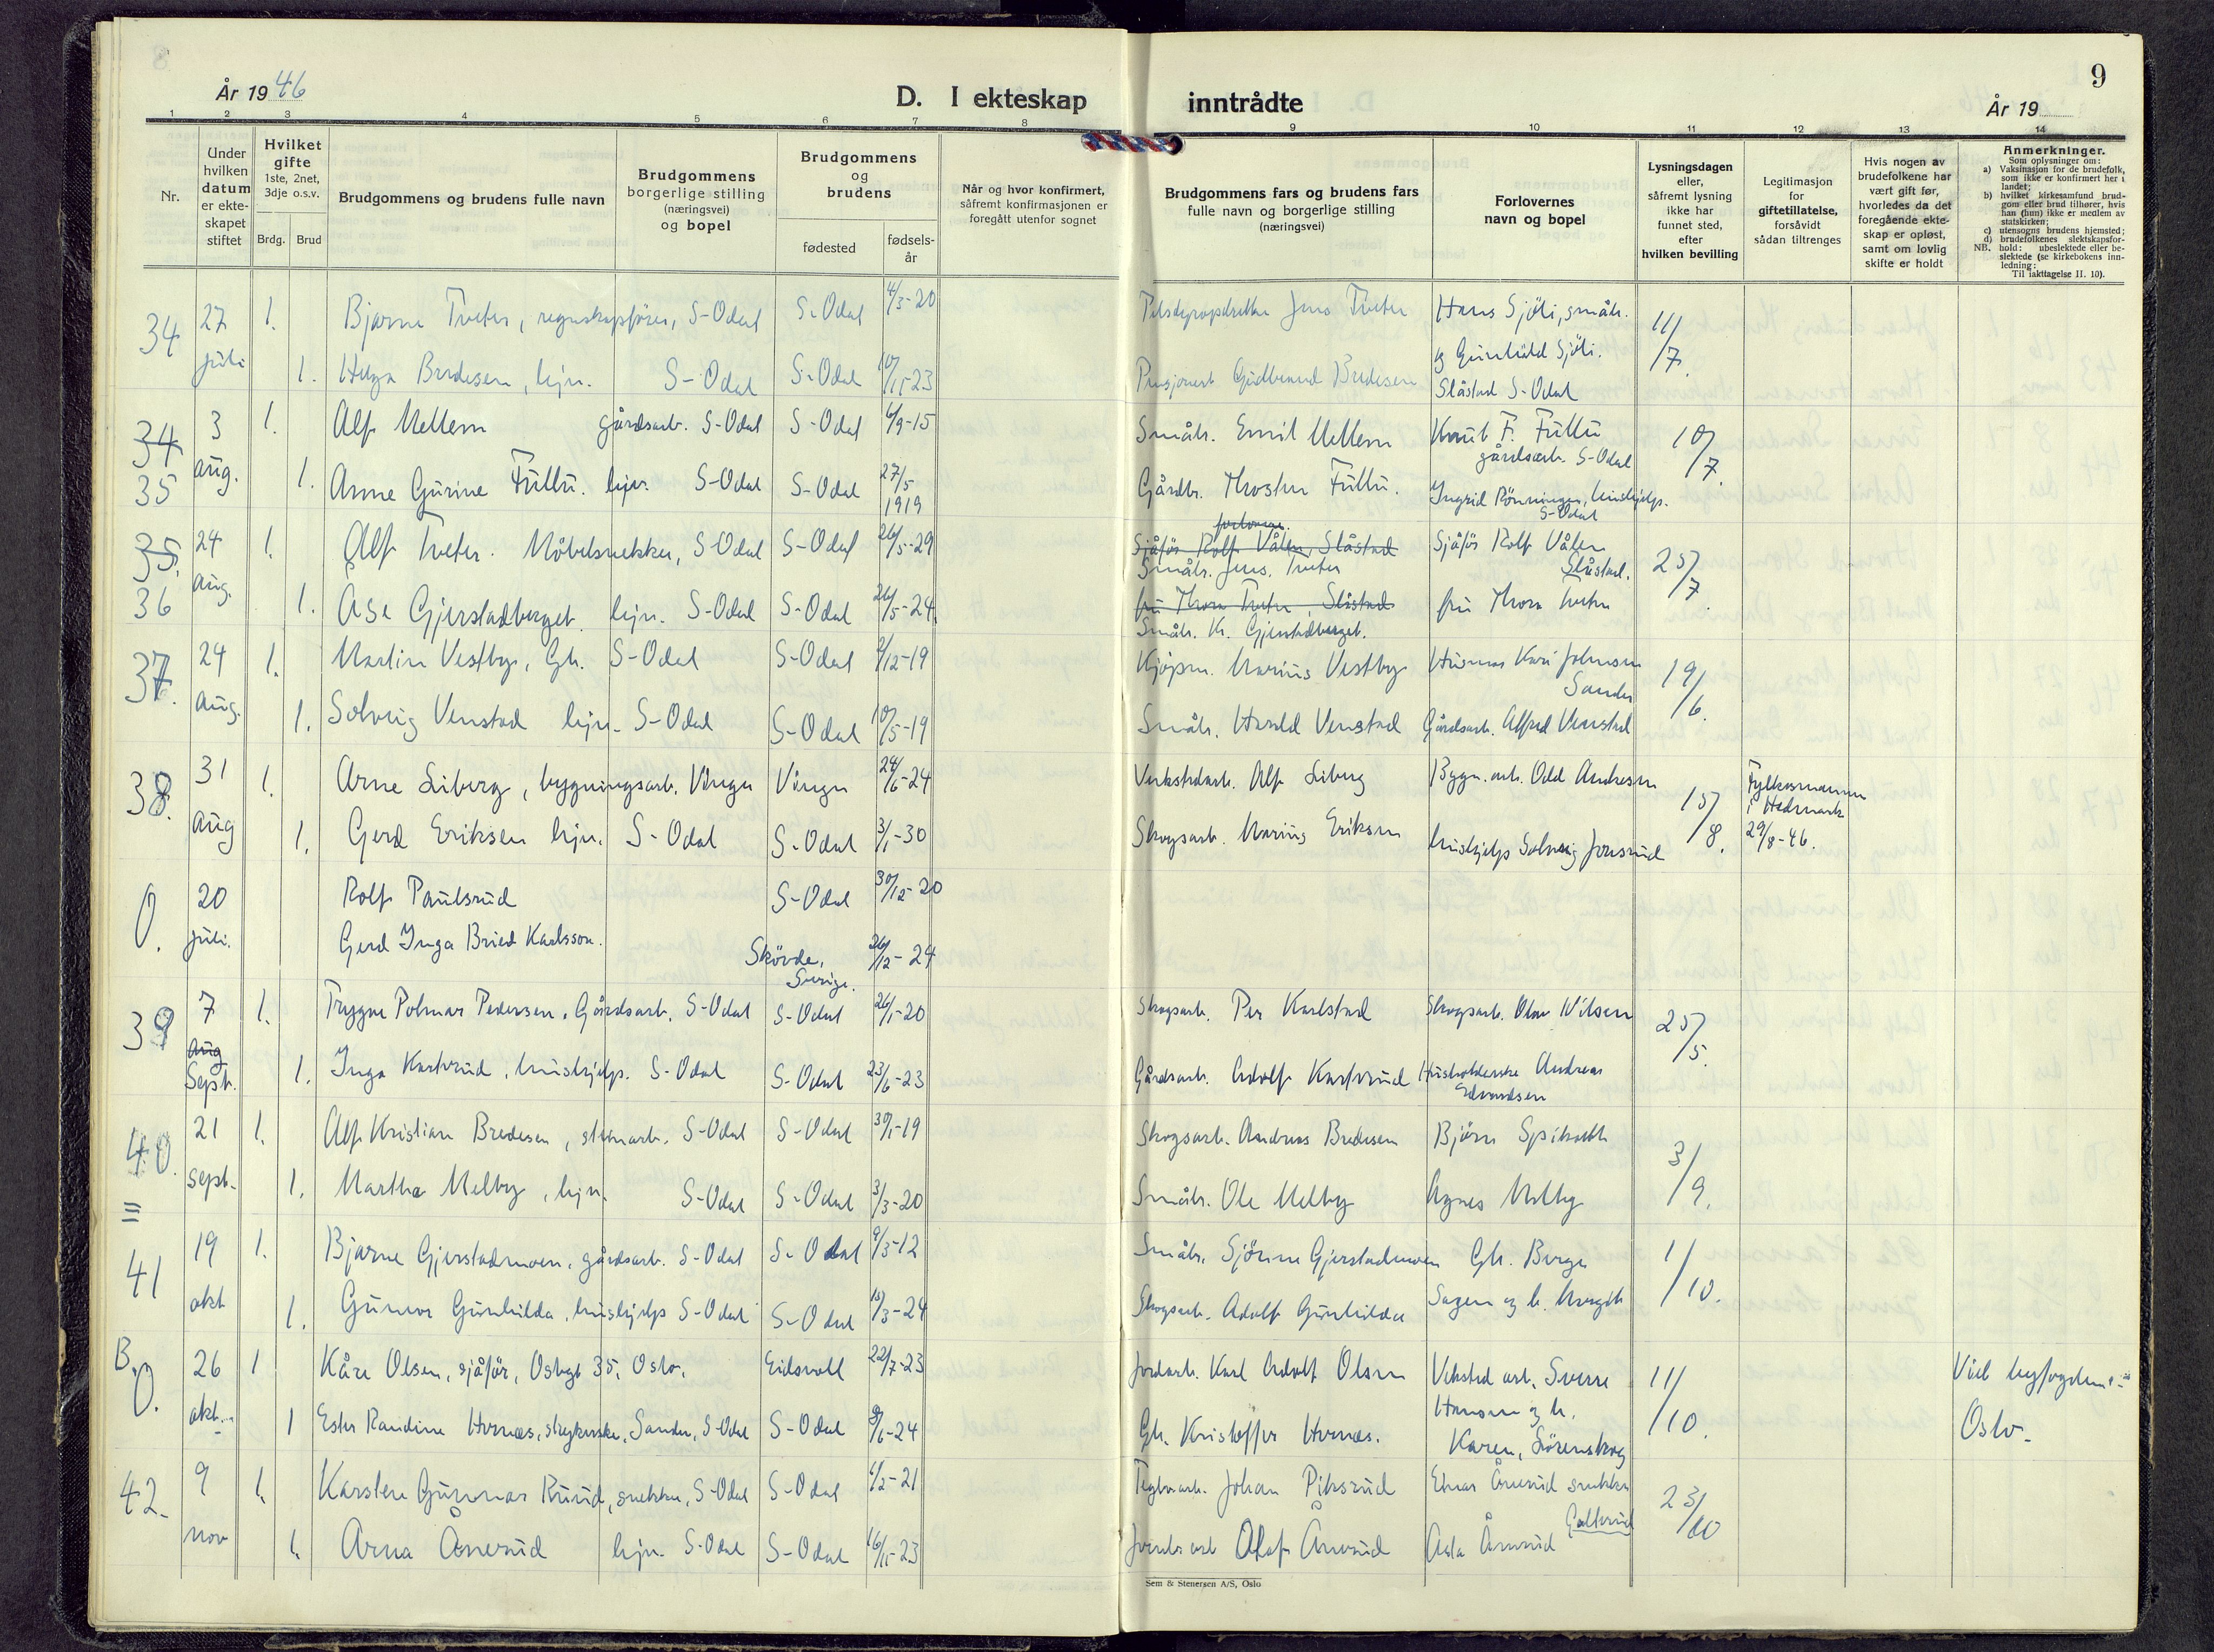 År 1946
D. I ekteskap
inntrådte
9
År 19
1 2 3 4 5 6 7 8 9 10 11 12 13 14
Nr.
Under hvilken datum er ekte- skapet stiftet
Hvilket gifte 1ste, 2net, 3dje o.s.v.
Brdg. Brud
Brudgommens og brudens fulle navn
Brudgommens borgerlige stilling (næringsvei) og bopel
Brudgommens og brudens
fødested
fødsels- år
Når og hvor konfirmert, såfremt konfirmasjonen er foregått utenfor sognet
Brudgommens fars og brudens fars fulle navn og borgerlige stilling (næringsvei)
Forlovernes navn og bopel
Lysningsdagen eller, såfremt lysning ikke har funnet sted, efter hvilken bevilling
Legitimasjon for giftetillatelse, forsåvidt sådan tiltrenges
Hvis nogen av brudefolkene har vært gift før, hvorledes da det foregående ekte- skap er opløst, samt om lovlig skifte er holdt
Anmerkninger.
Som oplysninger om:
a) Vaksinasjon for de brudefolk, som ikke er konfirmert her i landet;
b) hvilket kirkesamfund brud- gom eller brud tilhører, hvis han (hun) ikke er medlem av statskirken;
c) utensogns brudens hjemsted;
d) brudefolkenes slektskapsfor- hold: ubeslektede eller be- slektede (se kirkebokens inn- ledning:
NB. Til iakttagelse II. 10).
34 27 juli 1. Bjarne Tveter, regnskapsfører, S-Odal S-Odal 4/3-20 Jens Tveter Hans Sjøli, småbr. 11/7
1. Helga Bredesen, hjv. S-Odal S-Odal 10/11-23 Pensjonist Gudbrand Bredesen og Gunhild Sjøli. Slåstad S-Odal
34 35 3 aug. 1. Alf Mellem gårdsarb. S-Odal S-Odal 6/9-15 Småbr. Emil Mellem Knut F. Fullu gårdsarb. S-Odal 10/7.
1. Anne Gurine Fullu. hjv. S-Odal S-Odal 27/5 1919 Gårdbr. Thosten Fullu. Ingrid Rönningen, hushjelp. S-Odal
35. 36 24 aug. 1. Alf Tveter. Möbelsnekker, S-Odal S-Odal 26/5-29 forlovere. Sjåför Rolf Vålen, Slåstad Småbr. Jens. Tveter Sjåför Rolf Vålen Slåstad. 25/7.
1. Åse Gjerstadberget. hjv. S-Odal S-Odal 26/5-24. fru Thora Tveter, Slåstad Småbr. Kr. Gjerstadberget. fru Thora Tveter
37. 24 aug. 1. Martin Vestby, Gb. S-Odal S-Odal 2/12-19 Kjöpm. Marius Vestby Kari Johnsen Sander 19/6.
1. Solveig Venstad hjv. S-Odal S-Odal 10/5-19 Småbr. Harald Venstad Gårdsarb. Alfred Venstad
38. 31 aug 1. Arne Liberg, bygningsarb. Vinger Vinger 24/6-24 Verkstedarb. Alf Liberg Bygn. arb. Odd Andresen 15/8. Fylkesmannen i Hedmark 29/8-46.
1. Gerd Eriksen hjv. S-Odal S-Odal 3/1-30 Skogsarb. Marius Eriksen hushjelp Solveig Jonsrud
0. 20 juli. Rolf Paulsrud S-Odal 30/12-20
Gerd Inga Bried Karlsson. Skövde, Sverige. 26/12-24
39 7 aug Sept. 1. Trygve Polmar Pedersen, Gårdsarb. S-Odal S-Odal 26/1-20 Skogsarb. Per Karlstad Skogsarb. Olav Nilsen 25/5.
1. Inga Kurverud, hushjelp. S-Odal S-Odal 23/6-23 Gårdsarb. Adolf Kurverud Husholderske Andrea Edvardsen
40. 21 sept. 1. Alf Kristian Bredesen, stenarb. S-Odal S-Odal 30/1-19 Skogsarb. Andreas Bredesen Björn 3/9.
1. Martha Melby, hjv. S-Odal S-Odal 3/3-20 Småbr. Ole Melby Agnes Melby
41 19 okt 1. Bjarne Gjerstadmoen, gårdsarb. S-Odal S-Odal 9/3-12 Småbr. Sjönne Gjerstadmoen Gb. Birger 1/10.
1. Gunvor Gunhilda, hushjelp S-Odal S-Odal 10/3-24 Skogsarb. Adolf Gunhilda Sagen og h. Margit
B. 0. 26 okt. 1 Kåre Olsen, sjåför, Osbygt 35, Oslo. Eidsvoll 22/7-23 Jordarb. Karl Adolf Olsen Verksted arb. Sverre 11/10. Viet byfogden i Oslo.
1 Ester Randine Hornæs, strykerske, Sander, S-Odal S-Odal 9/6-24 Gb. Kristoffer Hornæs. Hansen og h. Karen, Lörenskog
42. 9 nov 1. Karsten Gunnar Ruud, snekker, S-Odal S-Odal 6/2-21 Teglv.arb. Johan Pilsrud Einar Ånerud snekker Galterud 23/10
1. Arna Ånerud hjv. S-Odal S-Odal 16/11-23 Olaf Ånerud Asta Ånerud
Sem & Stenersen A/S, Oslo